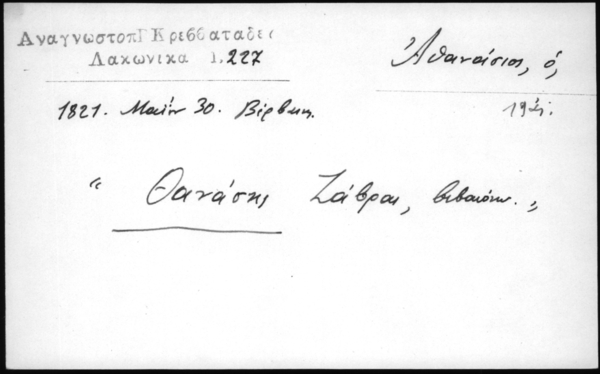 ΑναγνωστοπΓ Κρεββαταδες
Λακωνικα 1.227
Ἀθανάσιος, ὁ,
1821. Μαΐου 30. Βέρβενα.
“ Θανάσης Ζάβρας, βεβαιόνω. „